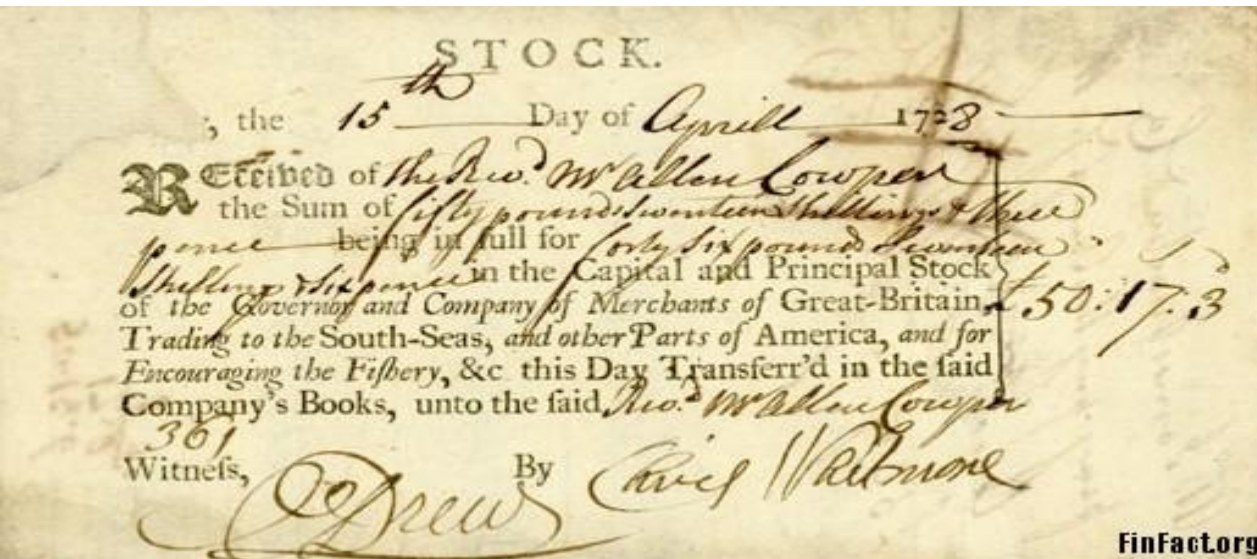 STOCK.
, the 15th Day of Aprill 1728
REceived of the Revd. Mr Allen Cowper
the Sum of fifty pounds Seventeen Shillings & three
pence being in full for forty Six pounds Seventeen
Shillings & Six pence in the Capital and Principal Stock
of the Governor and Company of Merchants of Great-Britain, £ 50:17:3
Trading to the South-Seas, and other Parts of America, and for
Encouraging the Fiſhery, &c this Day Tranſferr'd in the ſaid
Company's Books, unto the ſaid Revd. Mr Allen Cowper
361
Witneſs, By
Drew Whitmore
FinFact.org